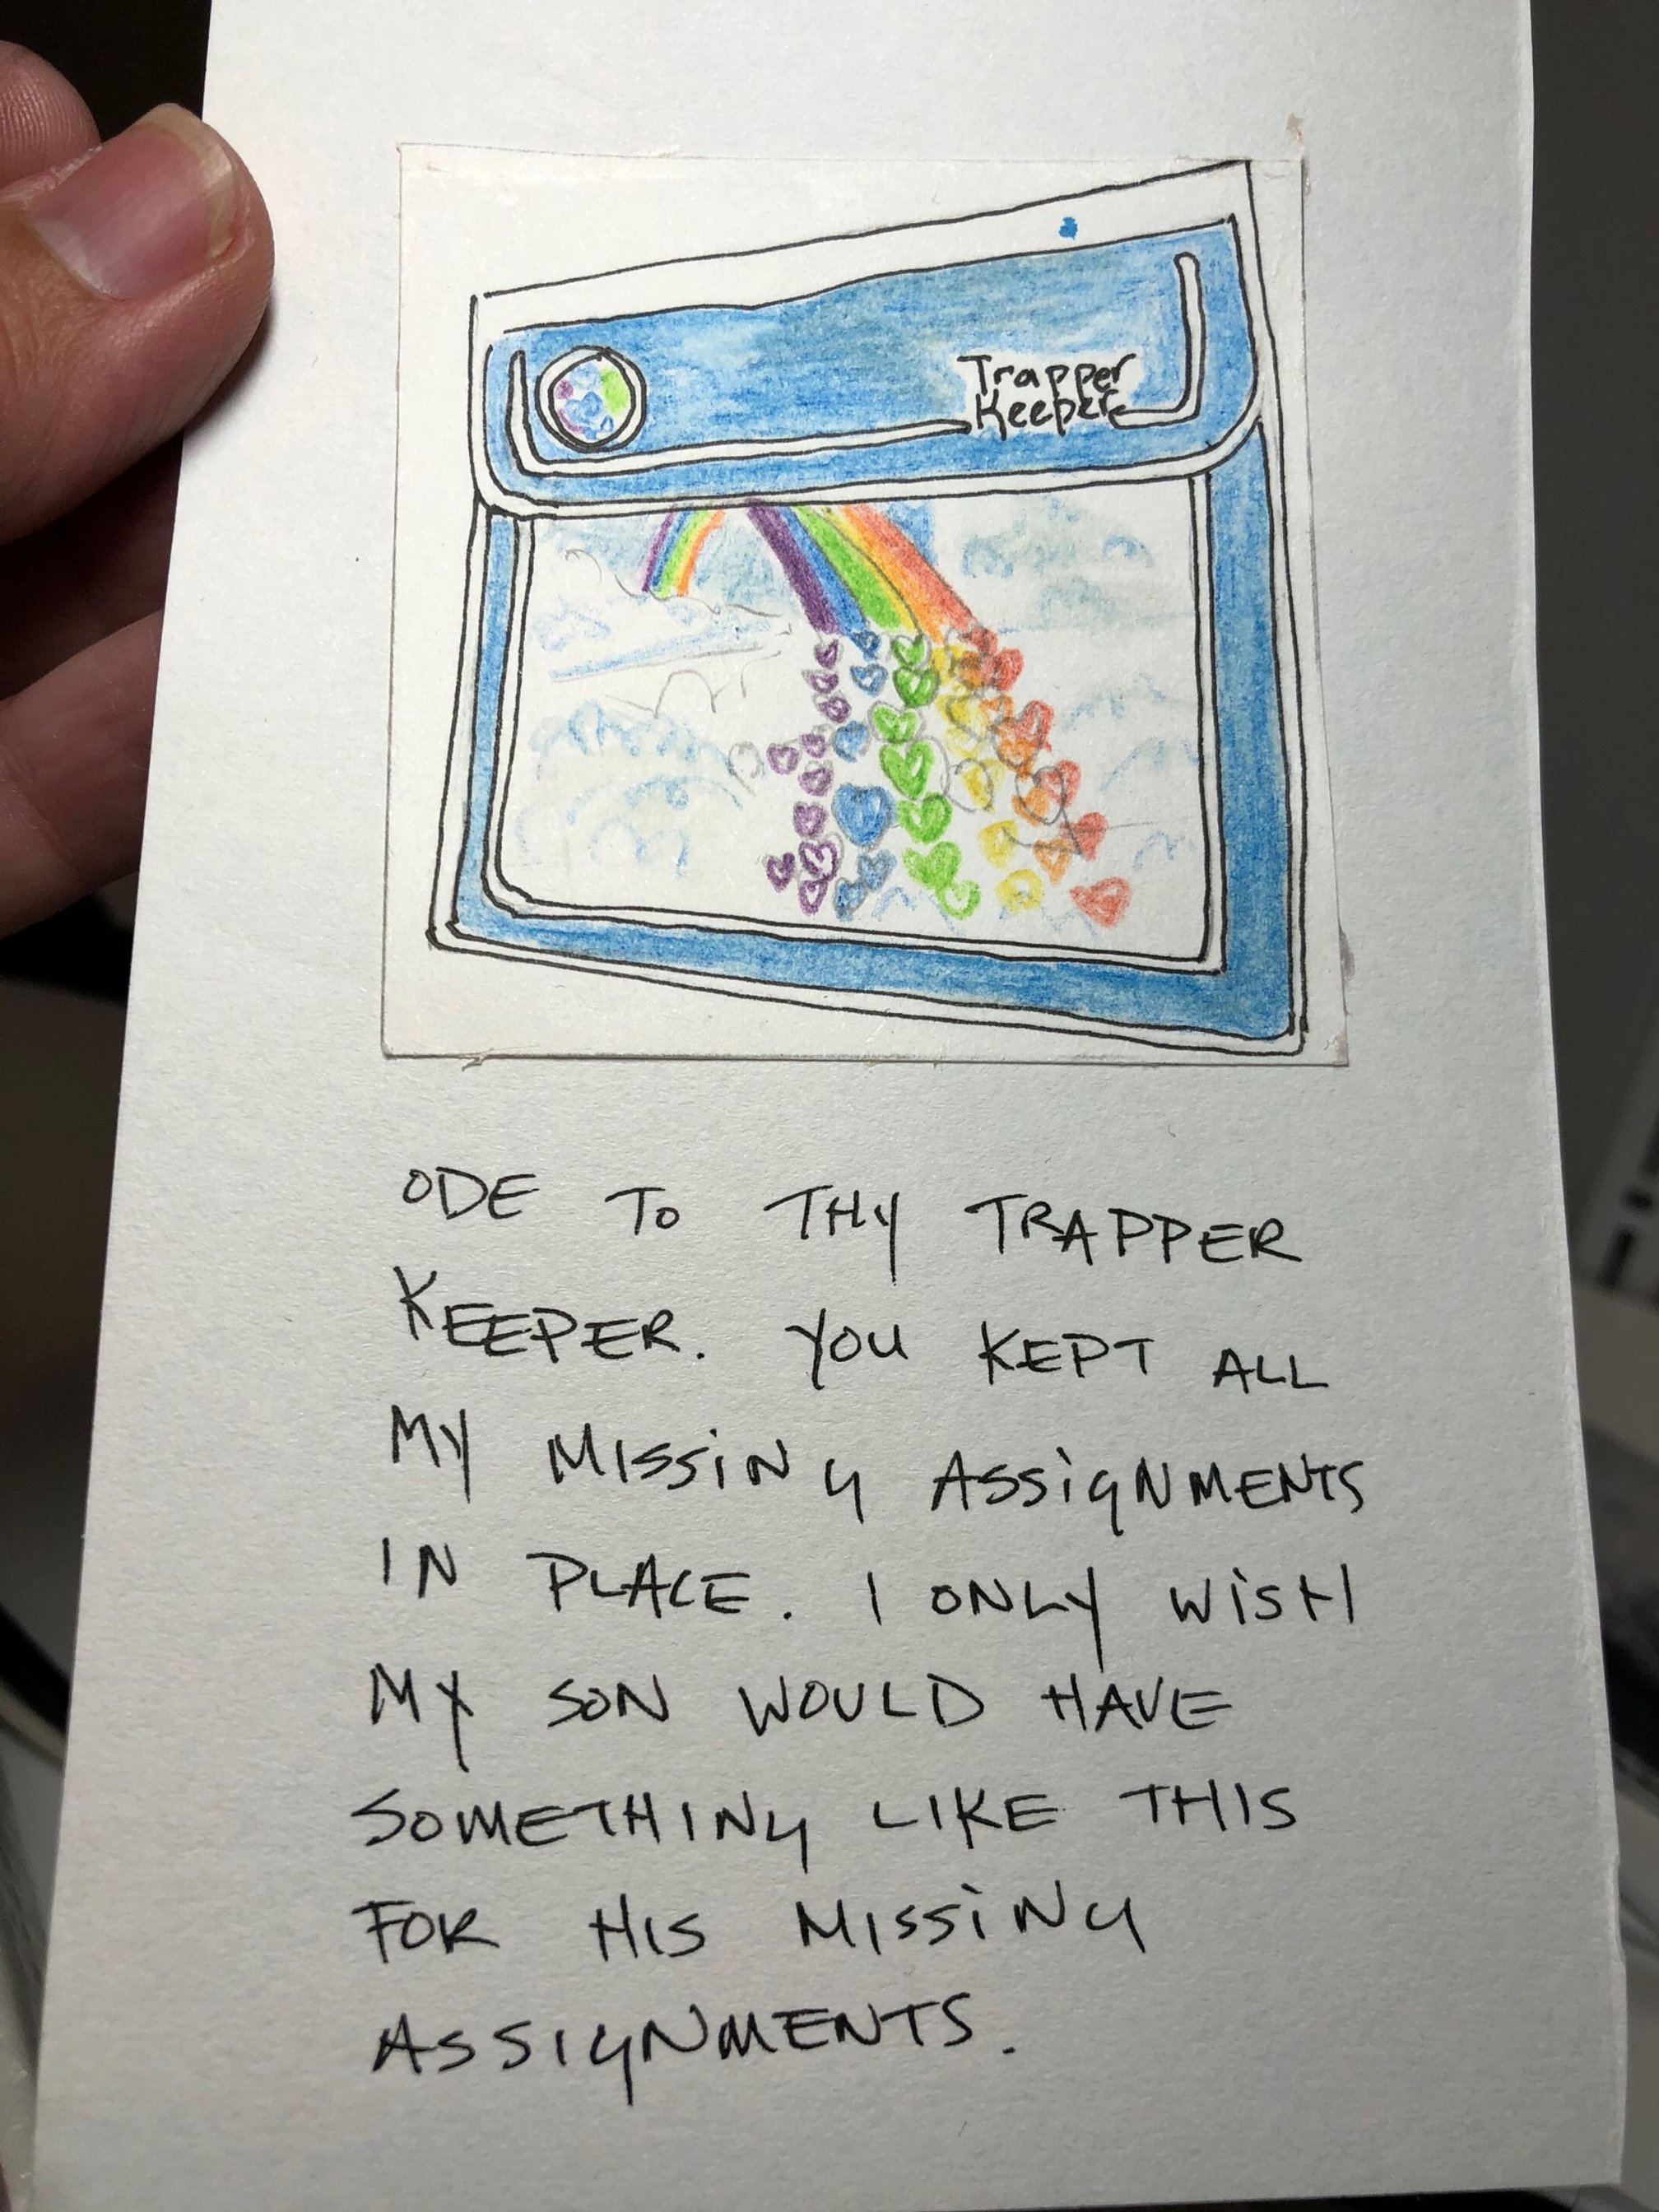 Trapper
Keeper
ODE TO THY TRAPPER
KEEPER. YOU KEPT ALL
MY MISSING ASSIGNMENTS
IN PLACE. I ONLY WISH
MY SON WOULD HAVE
SOMETHING LIKE THIS
FOR HIS MISSING
ASSIGNMENTS.